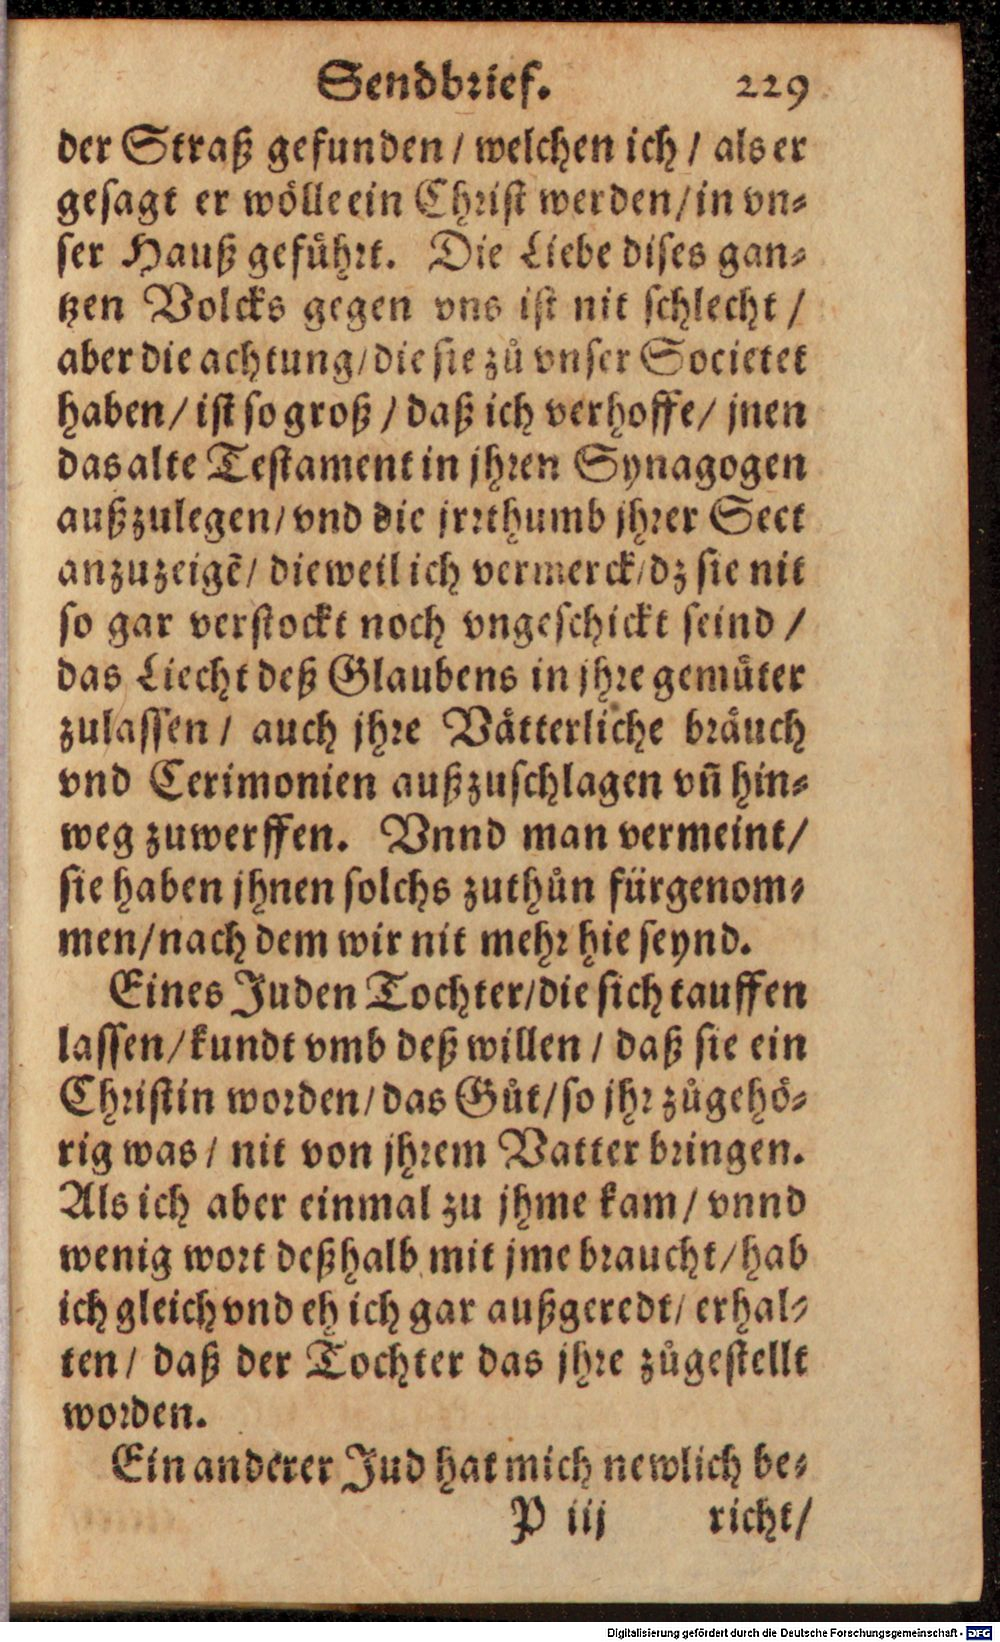 Sendbrief. 229
der Straß gefunden / welchen ich / als er
gesagt er wölle ein Christ werden / in vn-
ser Hauß gefůhrt. Die Liebe dises gan-
tzen Volcks gegen vns ist nit schlecht /
aber die achtung / die sie zů vnser Societet
haben / ist so groß / daß ich verhoffe / jnen
das alte Testament in jhren Synagogen
außzulegen / vnd die jrrthumb jhrer Sect
anzuzeigẽ / dieweil ich vermerck / dz sie nit
so gar verstockt noch vngeschickt seind /
das Liecht deß Glaubens in jhre gemůter
zulassen / auch jhre Vätterliche bräuch
vnd Cerimonien außzuschlagen vñ hin-
weg zuwerffen. Vnnd man vermeint /
sie haben jhnen solchs zuthůn fürgenom-
men / nach dem wir nit mehr hie seynd.
Eines Juden Tochter / die sich tauffen
lassen / kundt vmb deß willen / daß sie ein
Christin worden / das Gůt / so jhr zůgehö-
rig was / nit von jhrem Vatter bringen.
Als ich aber einmal zu jhme kam / vnnd
wenig wort deßhalb mit jme braucht / hab
ich gleich vnd eh ich gar außgeredt / erhal-
ten / daß der Tochter das jhre zůgestellt
worden.
Ein anderer Jud hat mich newlich be-
P iij richt /
Digitalisierung gefördert durch die Deutsche Forschungsgemeinschaft - DFG